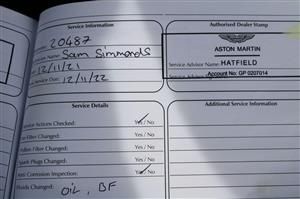 Service Information
Authorised Dealer Stamp
20487
Name: Sam Simmonds
12/11/21
Service Due: 12/11/22
ASTON MARTIN
Service Advisor Name: HATFIELD
Service Advisor
Account No: GP 0207014
Service Details
Additional Service Information
Service Actions Checked: Yes / No
Filter Changed: Yes / No
Pollen Filter Changed: Yes / No
Spark Plugs Changed: Yes / No
Anti Corrosion Inspection: Yes / No
Fluids Changed: OIL, BF